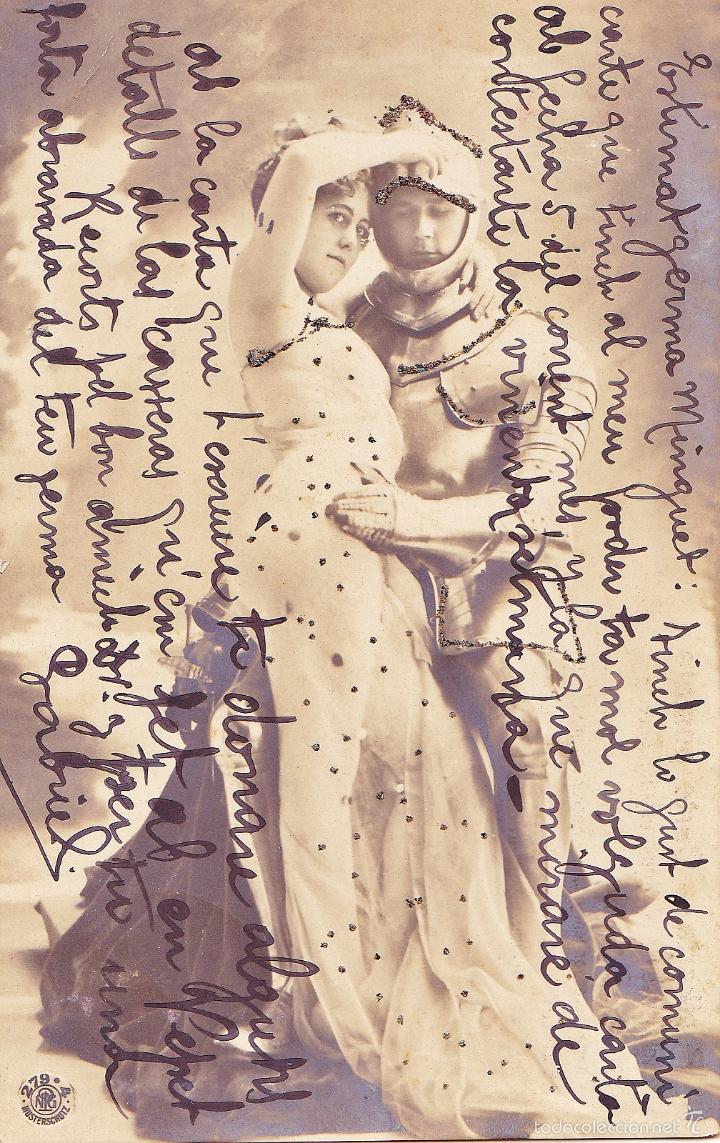 Estimat germa Minguet: Tinch lo gust de comuni
carte que tinch al meu poder ta mol volguda carta
ab fecha 5 del corient mes y la que mirare de
contestarte la vinenta setmana—
ab la carta que t'escriure te donare alguns
detalls de las carreras qu'em fet ab en Pepet
Recorts del bon amich tor. y
forta abrasada del teu germa Gabriel.
279 • 4
NPG
MUSTERSCHUTZ
todocoleccion.net